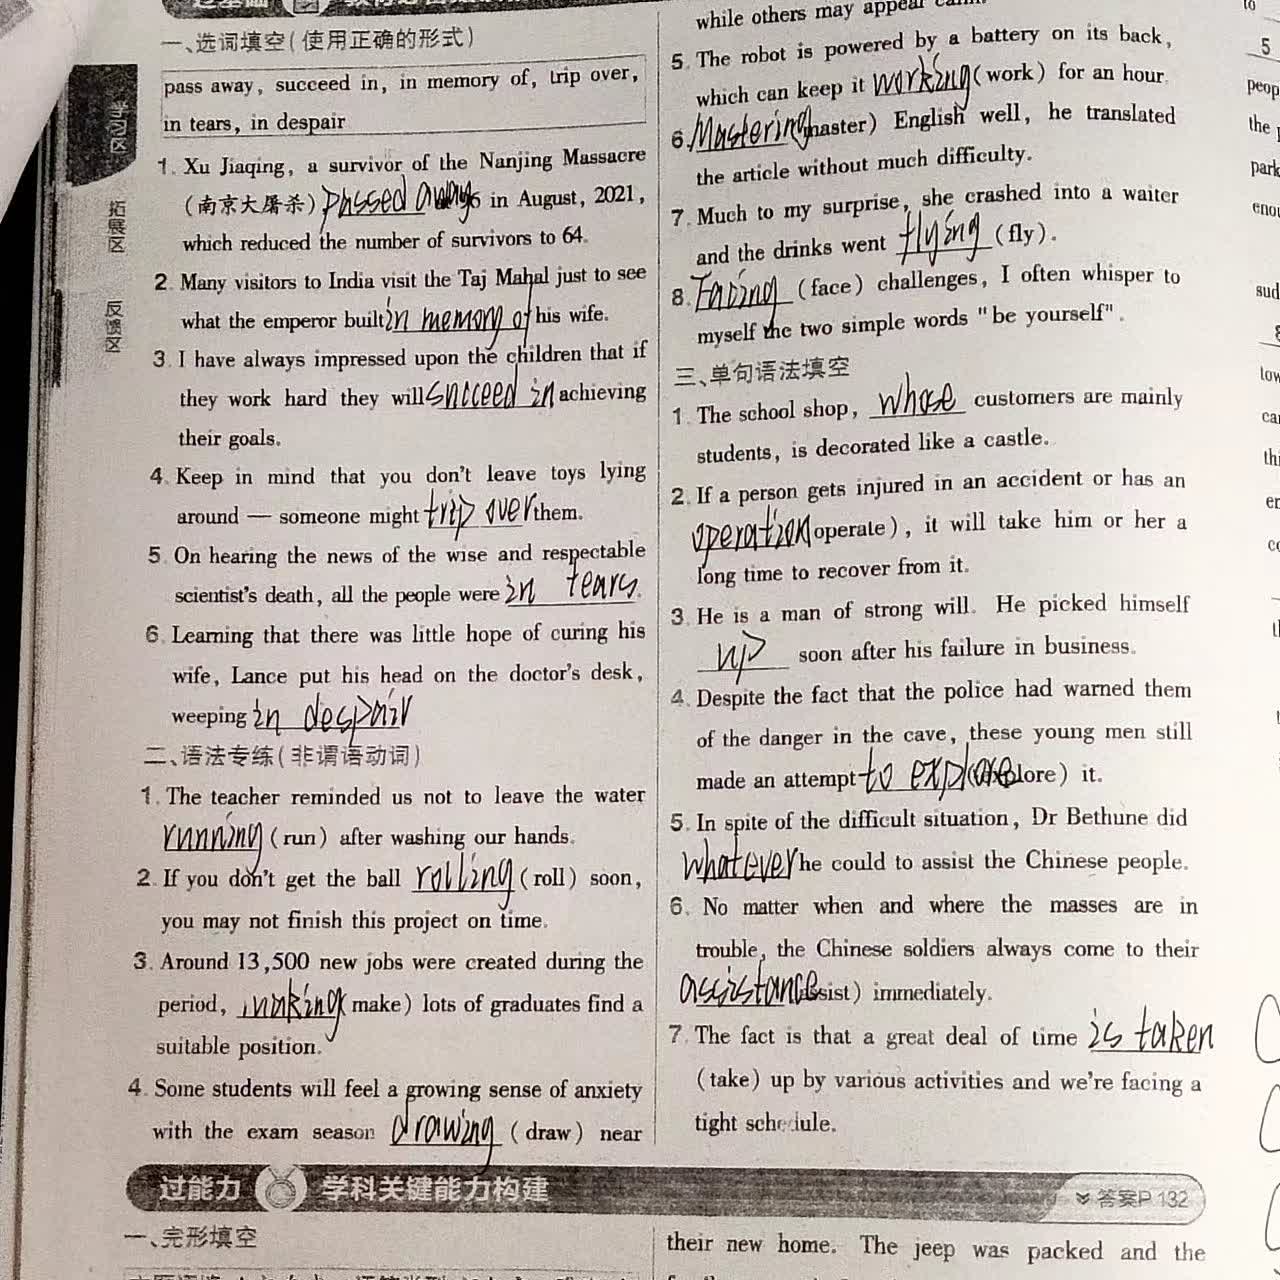 一、选词填空(使用正确的形式)
pass away, succeed in, in memory of, trip over,
in tears, in despair
1. Xu Jiaqing, a survivor of the Nanjing Massacre
(南京大屠杀) passed away in August, 2021,
which reduced the number of survivors to 64.
2. Many visitors to India visit the Taj Mahal just to see
what the emperor built in memory of his wife.
3. I have always impressed upon the children that if
they work hard they will succeed in achieving
their goals.
4. Keep in mind that you don't leave toys lying
around — someone might trip over them.
5. On hearing the news of the wise and respectable
scientist's death, all the people were in tears.
6. Learning that there was little hope of curing his
wife, Lance put his head on the doctor's desk,
weeping in despair
二、语法专练(非谓语动词)
1. The teacher reminded us not to leave the water
running (run) after washing our hands.
2. If you don't get the ball rolling (roll) soon,
you may not finish this project on time.
3. Around 13,500 new jobs were created during the
period, making (make) lots of graduates find a
suitable position.
4. Some students will feel a growing sense of anxiety
with the exam season drawing (draw) near
while others may appear calm.
5. The robot is powered by a battery on its back,
which can keep it working (work) for an hour.
6. Mastering (master) English well, he translated
the article without much difficulty.
7. Much to my surprise, she crashed into a waiter
and the drinks went flying (fly).
8. Facing (face) challenges, I often whisper to
myself the two simple words "be yourself".
三、单句语法填空
1. The school shop, whose customers are mainly
students, is decorated like a castle.
2. If a person gets injured in an accident or has an
operation (operate), it will take him or her a
long time to recover from it.
3. He is a man of strong will. He picked himself
up soon after his failure in business.
4. Despite the fact that the police had warned them
of the danger in the cave, these young men still
made an attempt to explore (explore) it.
5. In spite of the difficult situation, Dr Bethune did
whatever he could to assist the Chinese people.
6. No matter when and where the masses are in
trouble, the Chinese soldiers always come to their
assistance (assist) immediately.
7. The fact is that a great deal of time is taken
(take) up by various activities and we're facing a
tight schedule.
过能力 学科关键能力构建 答案P 132
一、完形填空
their new home. The jeep was packed and the
学习区
拓展区
反馈区